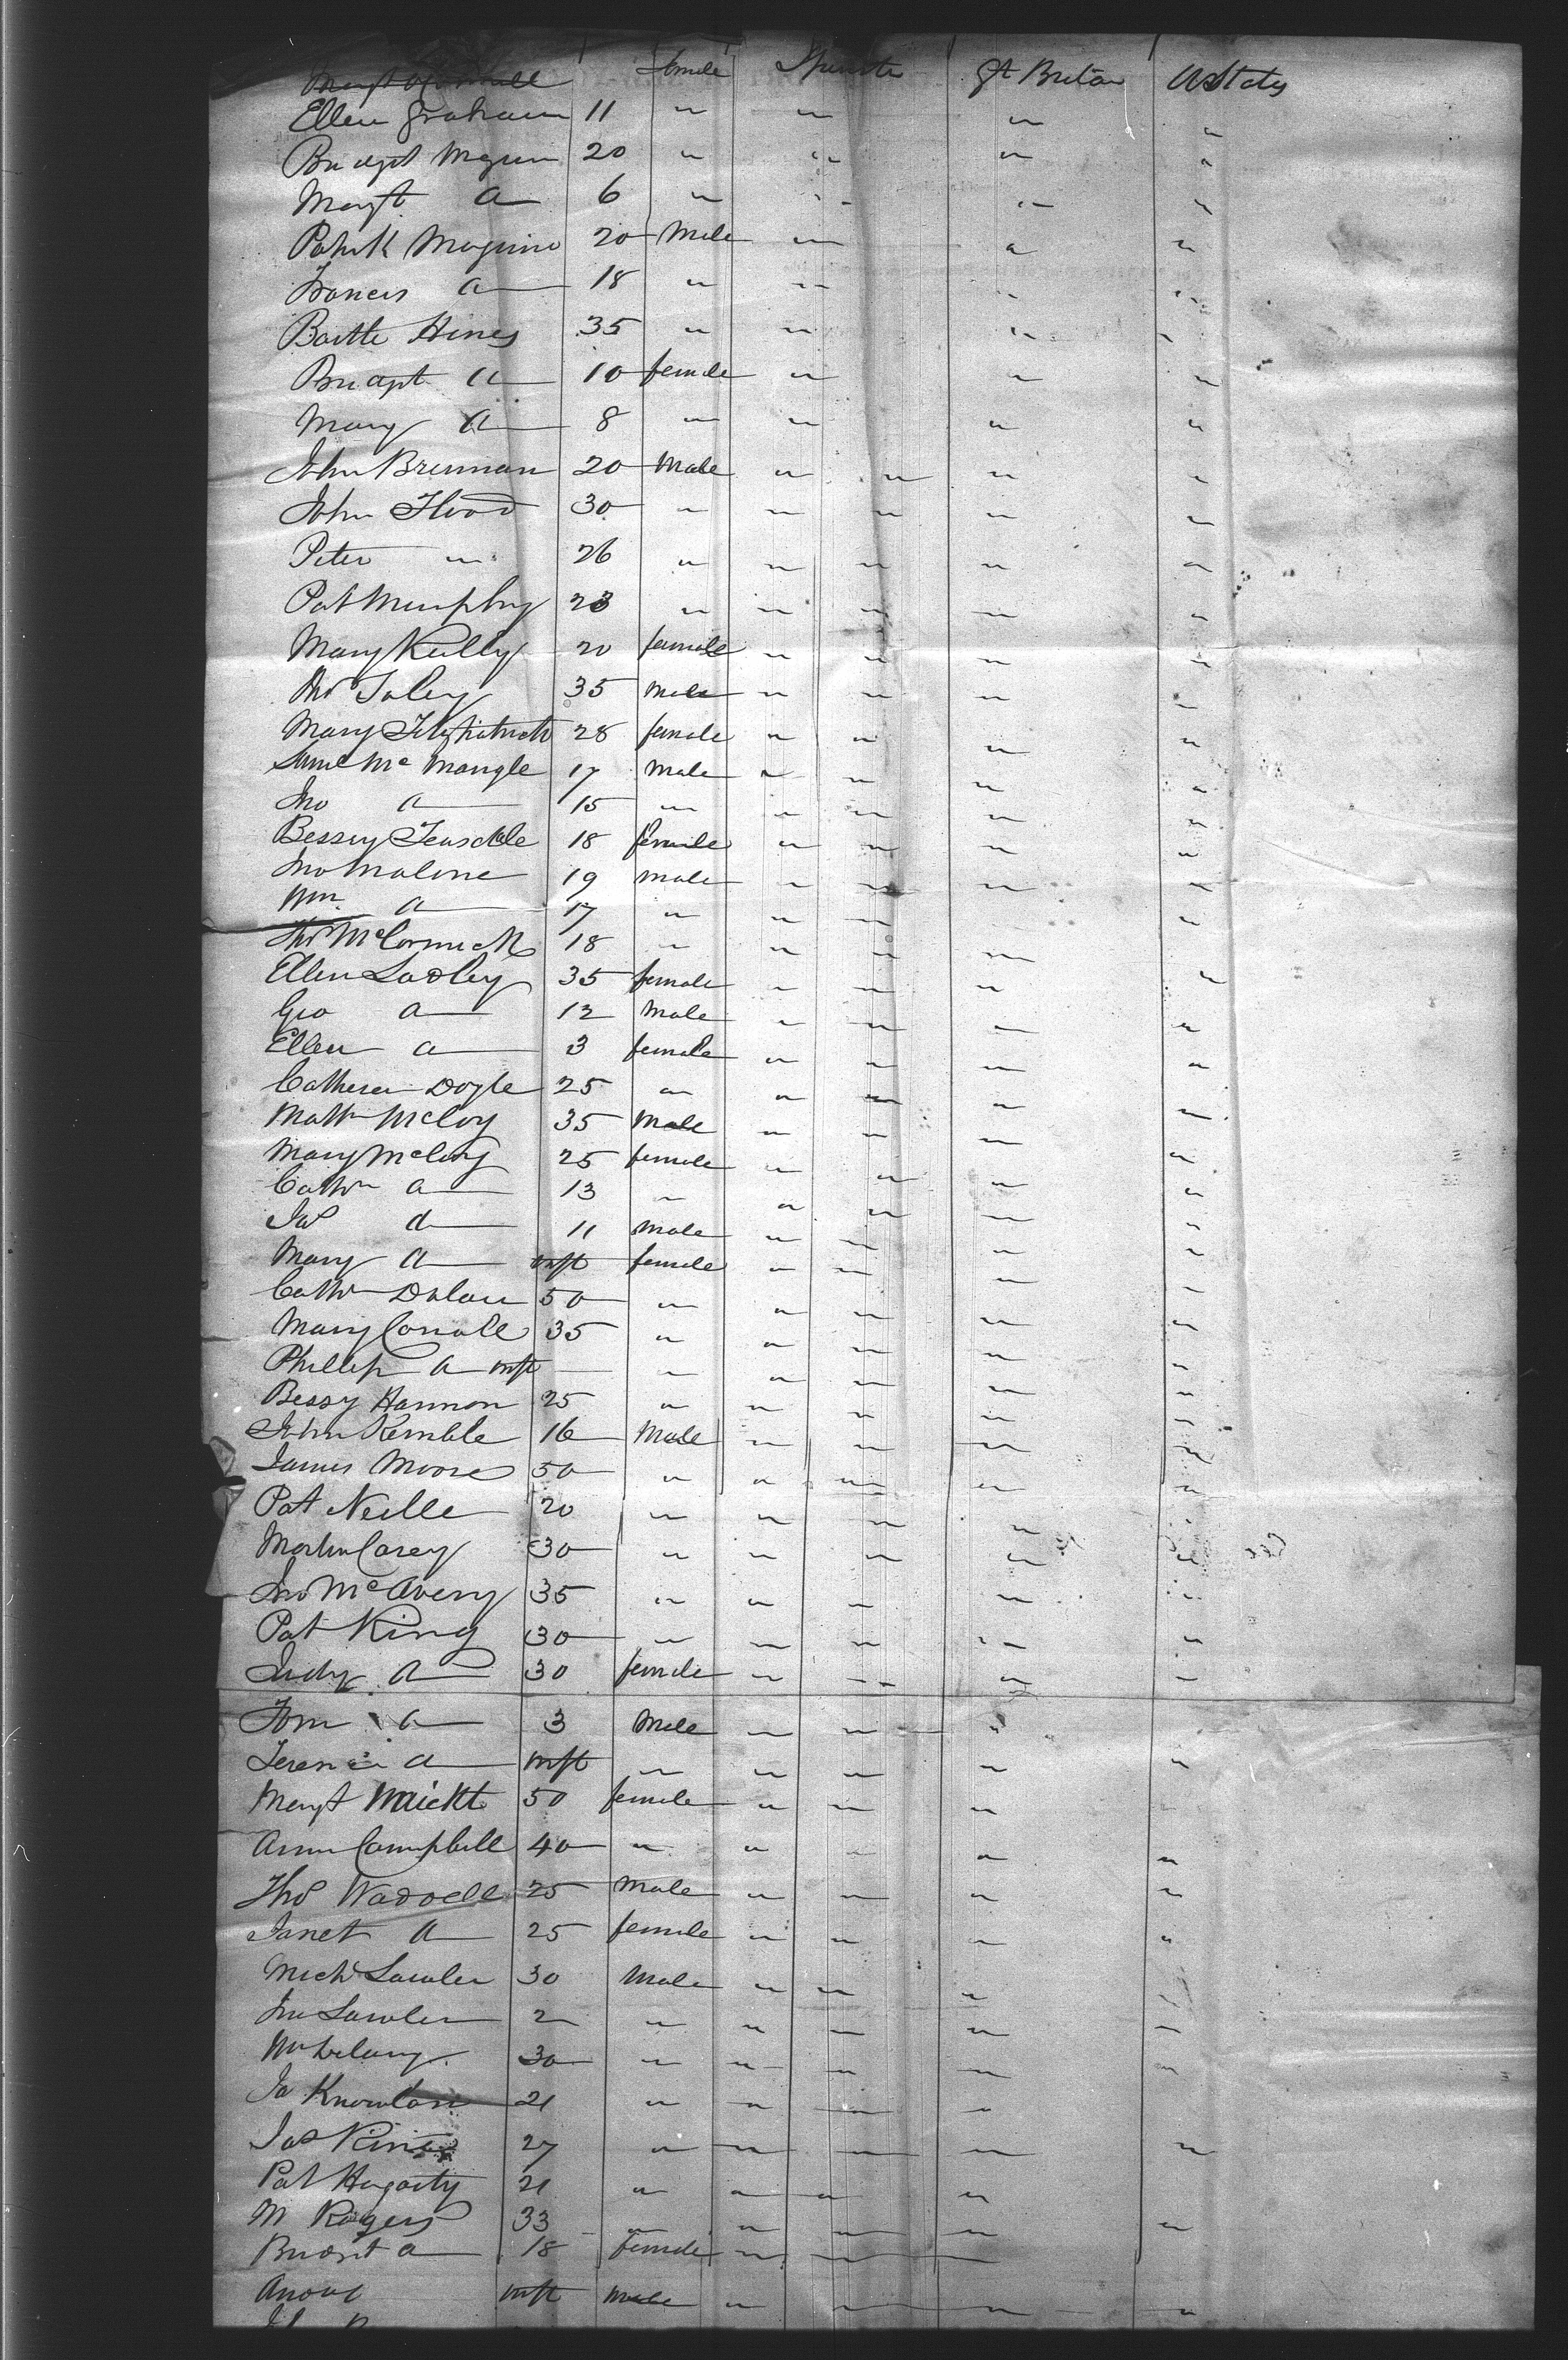 Margt female Spinster Gt Britan U States
Ellen Graham 11 " " " "
Bridgt 20 " " " "
Margt Do 6 " " " "
Patrik Maguire 20 Male " " "
Francis Do 18 " " " "
Bartle Hines 35 " " " "
Bridgt Do 10 female " " "
Mary Do 8 " " " "
John Brennan 20 Male " " " "
John Flood 30 " " " " "
Peter " 26 " " " " "
Pat Murphy 23 " " " " "
Mary Kelly 20 female " " " "
Thos Foley 35 Male " " " "
Mary Fitzpatrick 28 female " " " "
Saml Mc Mangle 17 Male " " " "
Jno Do 15 " " " " "
Bessey Teasdale 18 female " " " "
Jno Malone 19 male " " " "
Wm Do 17 " " " " "
Thos McCormick 18 " " " "
Ellen Ladley 35 female " " " "
Geo Do 12 Male " " " "
Ellen Do 3 female " " " "
Catheren Doyle 25 " " " " "
Matth McCoy 35 Male " " "
Mary McCoy 25 female " " " "
Cathn Do 13 " " " " "
Jas Do 11 Male " " " "
Mary Do inft female " " " "
Cathn Dolan 50 " " " " "
Mary Carroll 35 " " " " "
Phillip Do inft " " " " "
Bessy Hannon 25 " " " " "
John Kemble 16 Male " " " "
James Moore 50 " " " " "
Pat Neille 20 " " " " "
Martin Carey 30 " " " " "
Jno McAvery 35 " " " " "
Pat King 30 " " " " "
Judy Do 30 female " " " "
Tom Do 3 Male " " "
Terence Do inft " " " " "
Margt 50 female " " "
Ann Campbell 40 " " " " "
Thos Waddell 25 Male " " " "
Janet Do 25 female " " " "
Michl Lawler 30 Male " " " "
Jno Lawler 2 " " " " "
Wm Delany 30 " " " " "
Ja Knowlan 21 " " " "
Jas King 27 " " " " "
Pat Hagarty 21 " " " "
M Rogers 33 " " " " "
Bridgt Do 18 female " " "
inft male " " " "